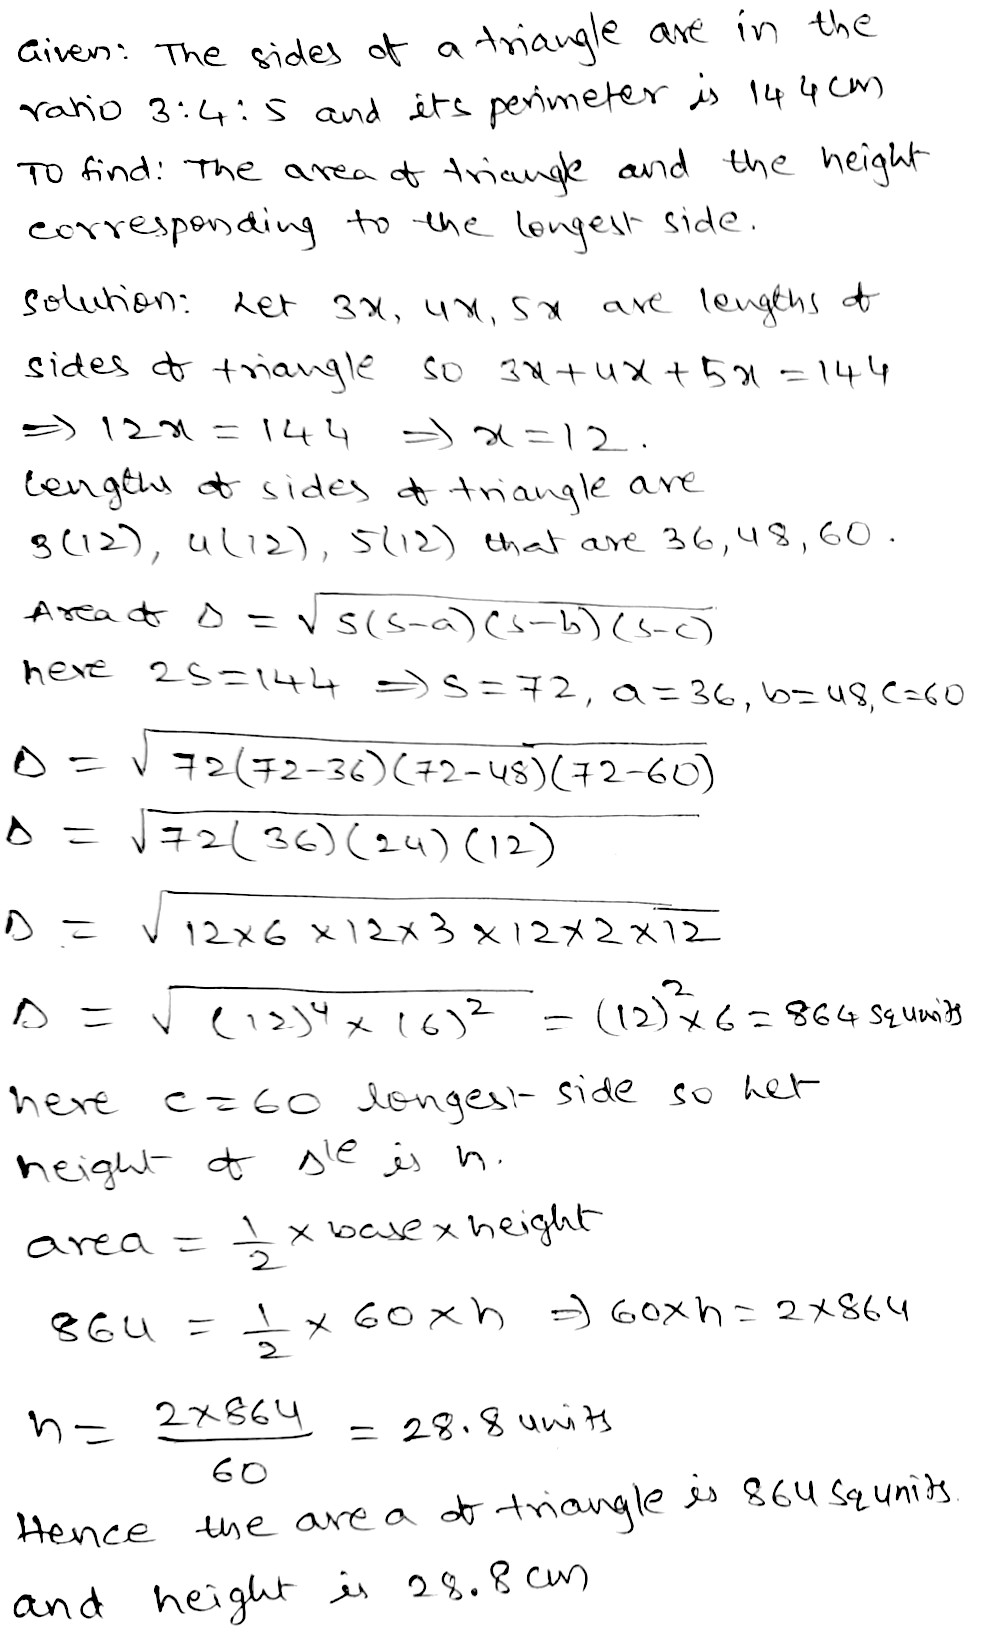 Given: The sides of a triangle are in the
ratio 3:4:5 and its perimeter is 144cm
To find: The area of triangle and the height
corresponding to the longest side.
Solution: Let 3x, 4x, 5x are lengths of
sides of triangle so 3x+4x+5x=144
⇒ 12x = 144 ⇒ x=12.
lengths of sides of triangle are
3(12), 4(12), 5(12) that are 36,48,60.
Area of Δ = √s(s-a)(s-b)(s-c)
here 2s=144 ⇒ s=72, a=36, b=48, c=60
Δ = √72(72-36)(72-48)(72-60)
Δ = √72(36)(24)(12)
Δ = √12×6×12×3×12×2×12
Δ = √(12)⁴×(6)² = (12)²×6 = 864 sq units
here c=60 longest side so let
height of Δle is h.
area = 1/2 × base × height
864 = 1/2 × 60×h ⇒ 60×h = 2×864
h = 2×864/60 = 28.8 units
Hence the area of triangle is 864 sq units.
and height is 28.8 cm